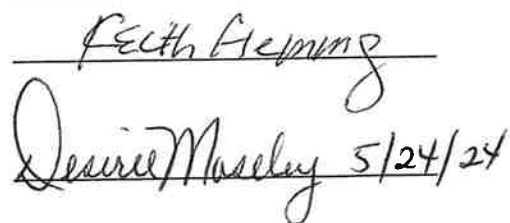 Keith Fleming
Desirie Moseley 5/24/24